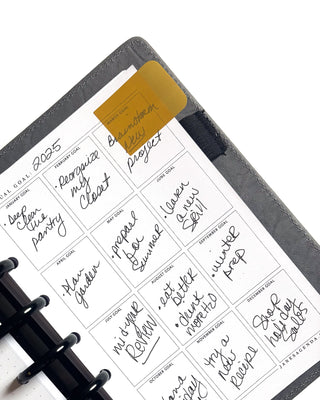 AL GOAL: 2025
JANUARY GOAL
• Deep
Clean
the
pantry
FEBRUARY GOAL
• Reorganize
my
closet
MARCH GOAL
Brainstorm
New
project
APRIL GOAL
• Plan
garden
MAY GOAL
• prepare
for
Summer
JUNE GOAL
• learn
a new
Skill
JULY GOAL
mid year
REVIEW!
AUGUST GOAL
• eat
better
• drink
more H2O
SEPTEMBER GOAL
• winter
prep
OCTOBER GOAL
NOVEMBER GOAL
try a
New
Recipe
DECEMBER GOAL
Shop
holiday
sales
JANESAGENDA